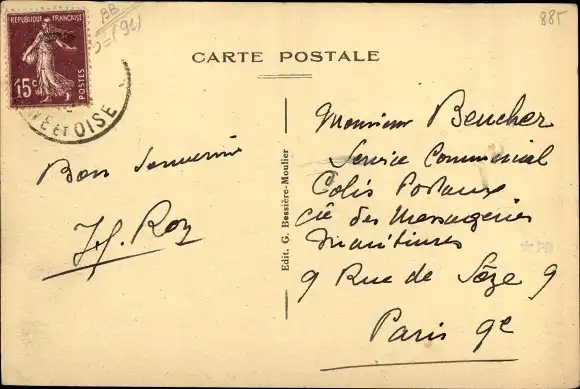 885
BB
(91)
REPUBLIQUE FRANÇAISE
15c
POSTES
E ET OISE
CARTE POSTALE
Bon souvenir
Roy
Edit. G. Bessière-Moulier
Monsieur Beucher
Service Commercial
Colis Postaux
Cie des Messageries
Maritimes
9 Rue de Sèze 9
Paris 9e